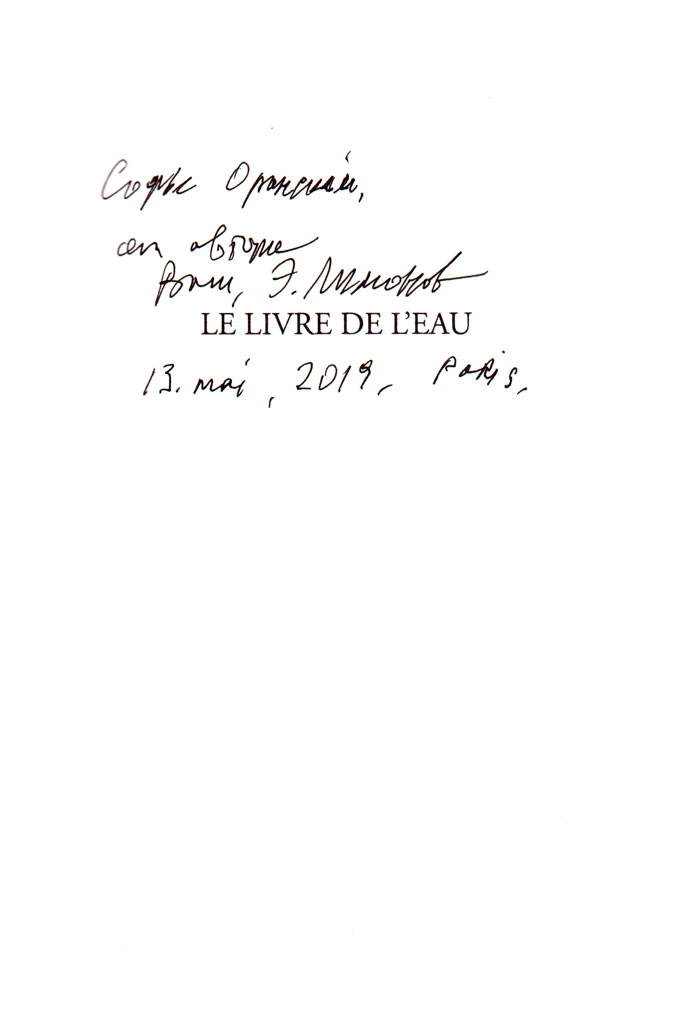 Софье Оранской,
от автора
Ваш, Э. Лимонов
LE LIVRE DE L'EAU
13. mai, 2019, PARIS,